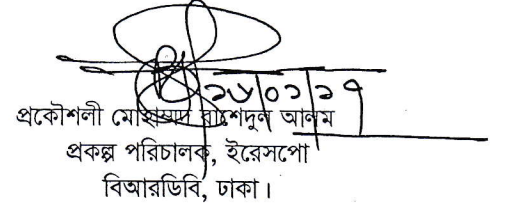 ১৬/০১/১৭
প্রকৌশলী মোহাম্মদ রাশেদুল আলম
প্রকল্প পরিচালক, ইরেসপো
বিআরডিবি, ঢাকা।